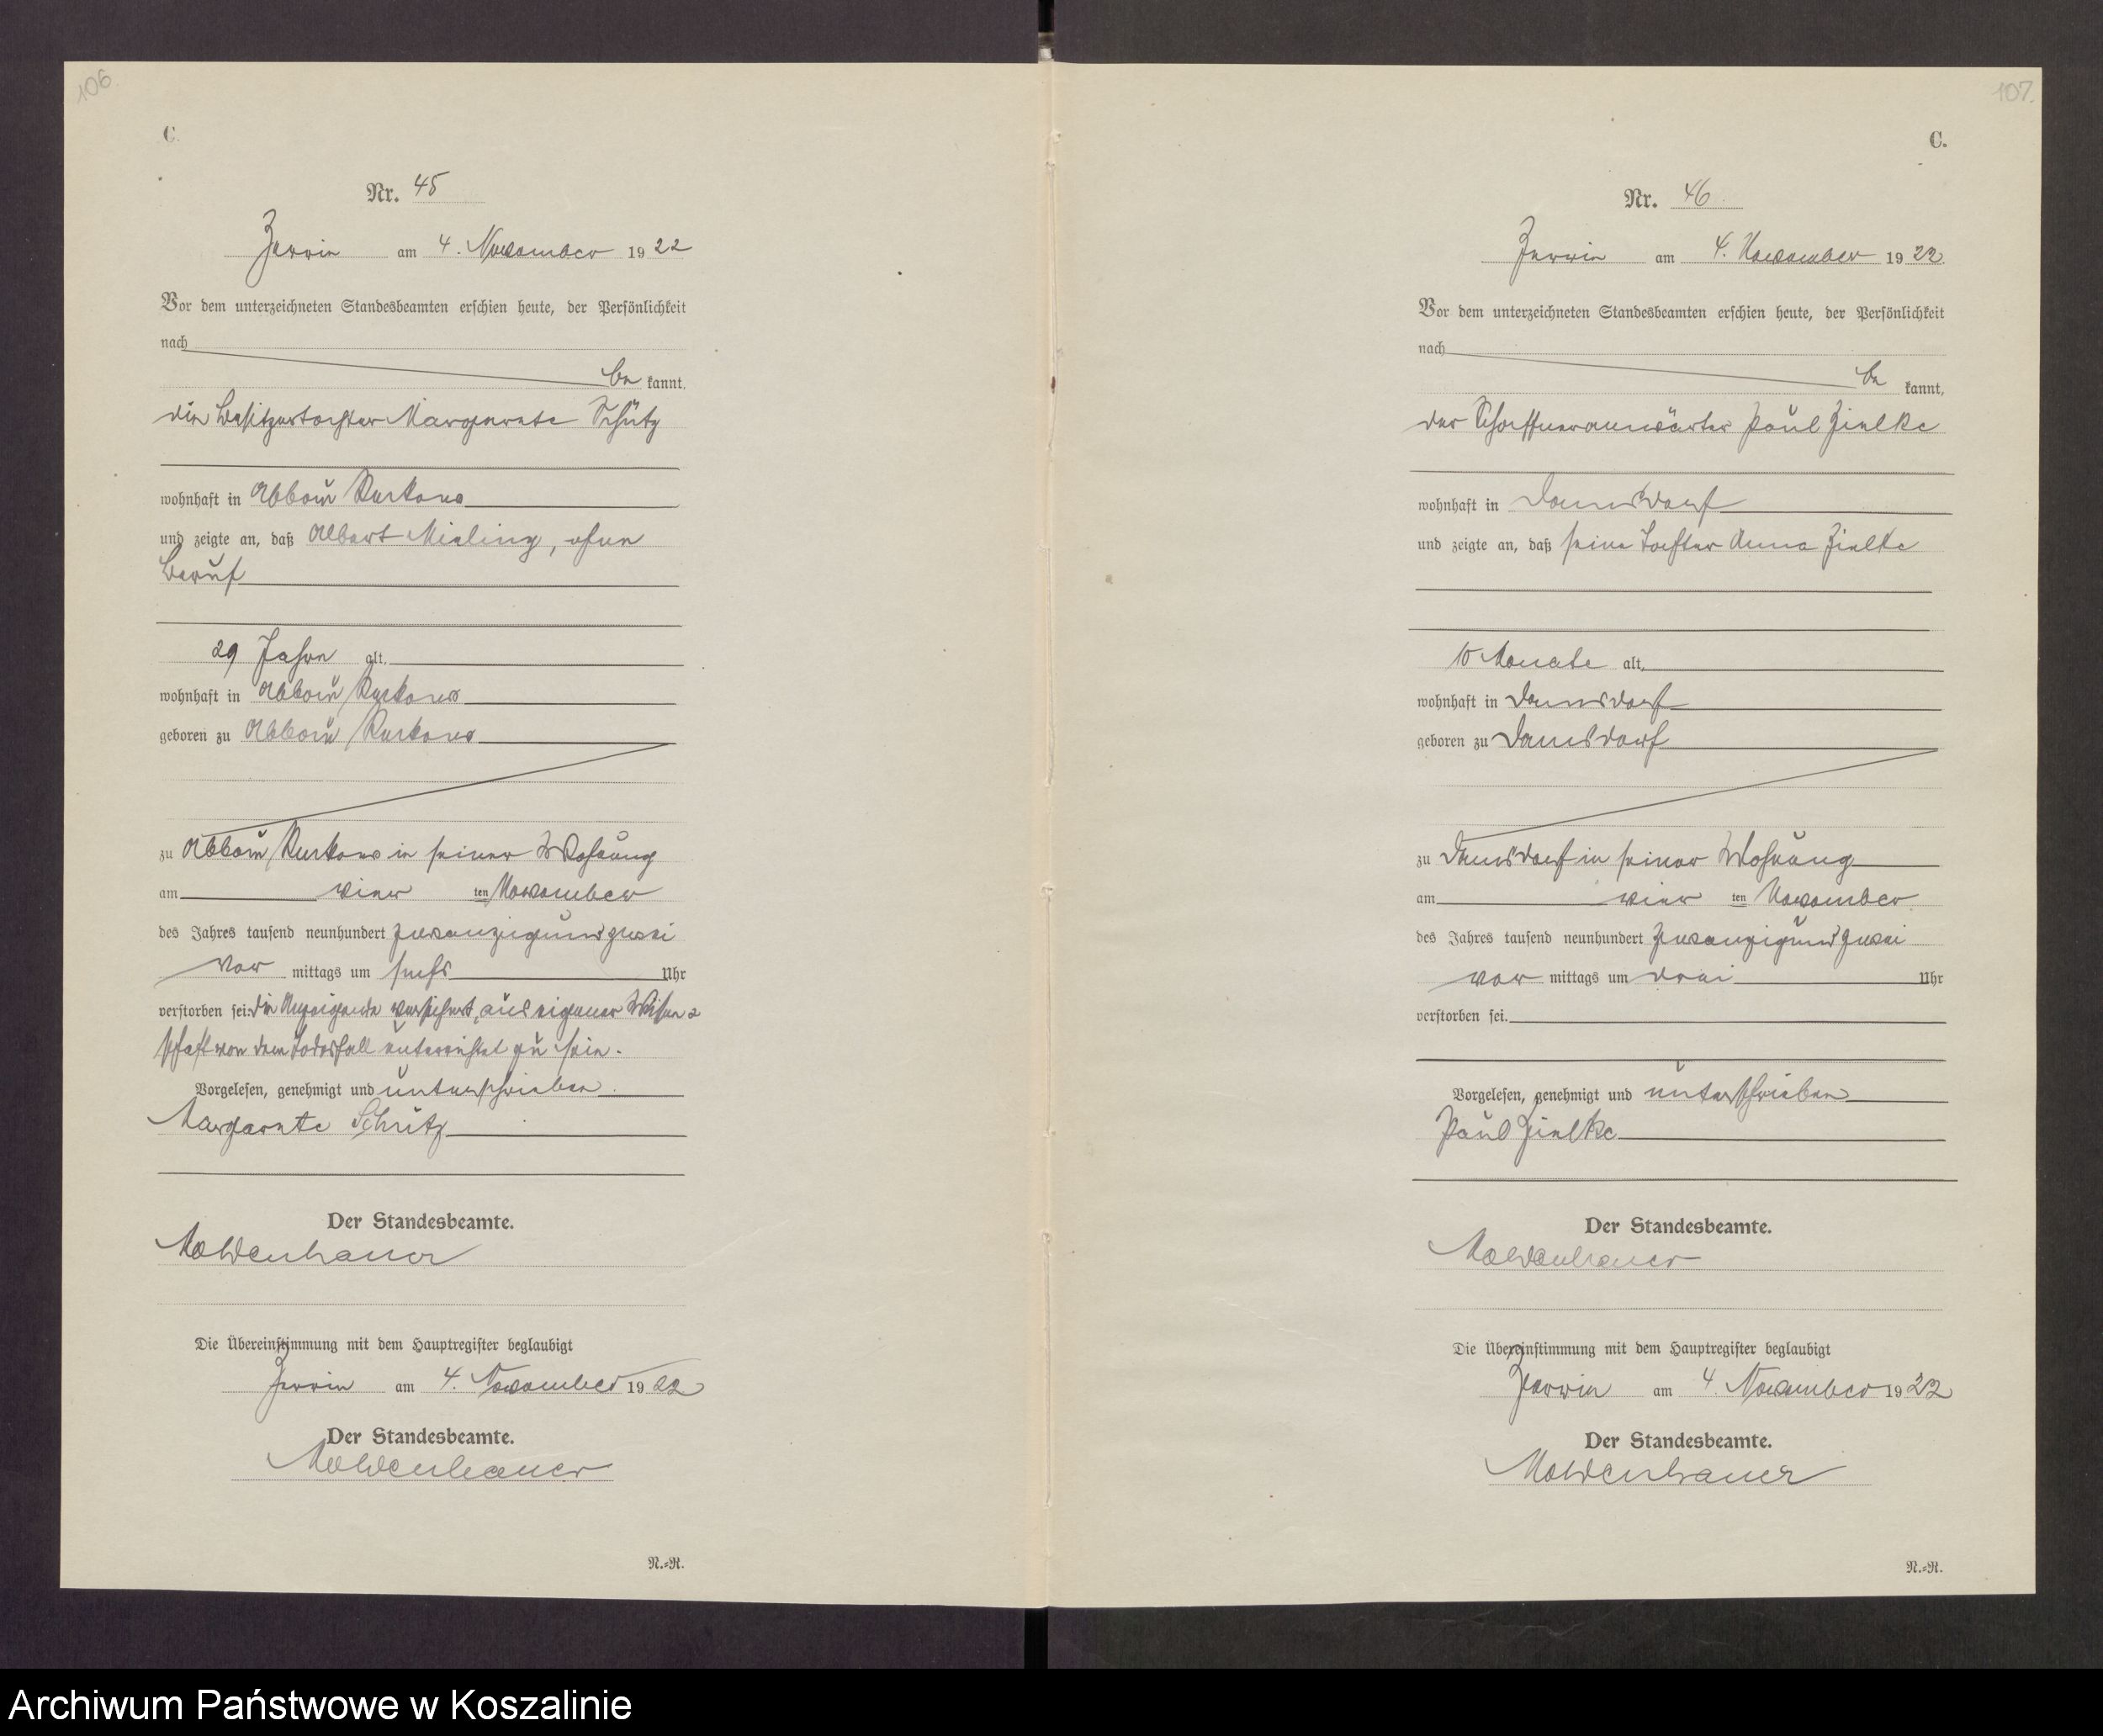 106.
C.
Nr. 45
Zerrin am 4. November 1922
Vor dem unterzeichneten Standesbeamten erschien heute, der Persönlichkeit
nach
be kannt,
die Besitzertochter Margarete Schütz
wohnhaft in Abbau Kurkow
und zeigte an, daß Albert Mieling, ohne
Beruf
29 Jahre alt,
wohnhaft in Abbau Kurkow
geboren zu Abbau Kurkow
zu Abbau Kurkow in seiner Wohnung
am vier ten November
des Jahres tausend neunhundert zwanzigundzwei
Vor mittags um sechs Uhr
verstorben sei. Die Anzeigende versichert, aus eigener Wissen-
schaft von dem Todesfall unterrichtet zu sein.
Vorgelesen, genehmigt und unterschrieben.
Margarete Schütz
Der Standesbeamte.
Moldenhauer
Die Übereinstimmung mit dem Hauptregister beglaubigt
Zerrin am 4. November 1922
Der Standesbeamte.
Moldenhauer
N.=R.
107.
C.
Nr. 46
Zerrin am 4. November 1922
Vor dem unterzeichneten Standesbeamten erschien heute, der Persönlichkeit
nach
be kannt,
der Schaffneranwärter Paul Zielke
wohnhaft in Damsdorf
und zeigte an, daß seine Tochter Anna Zielke
10 Monate alt,
wohnhaft in Damsdorf
geboren zu Damsdorf
zu Damsdorf in seiner Wohnung
am vier ten November
des Jahres tausend neunhundert zwanzigundzwei
vor mittags um drei Uhr
verstorben sei.
Vorgelesen, genehmigt und unterschrieben
Paul Zielke
Der Standesbeamte.
Moldenhauer
Die Übereinstimmung mit dem Hauptregister beglaubigt
Zerrin am 4. November 1922
Der Standesbeamte.
Moldenhauer
N.=R.
Archiwum Państwowe w Koszalinie